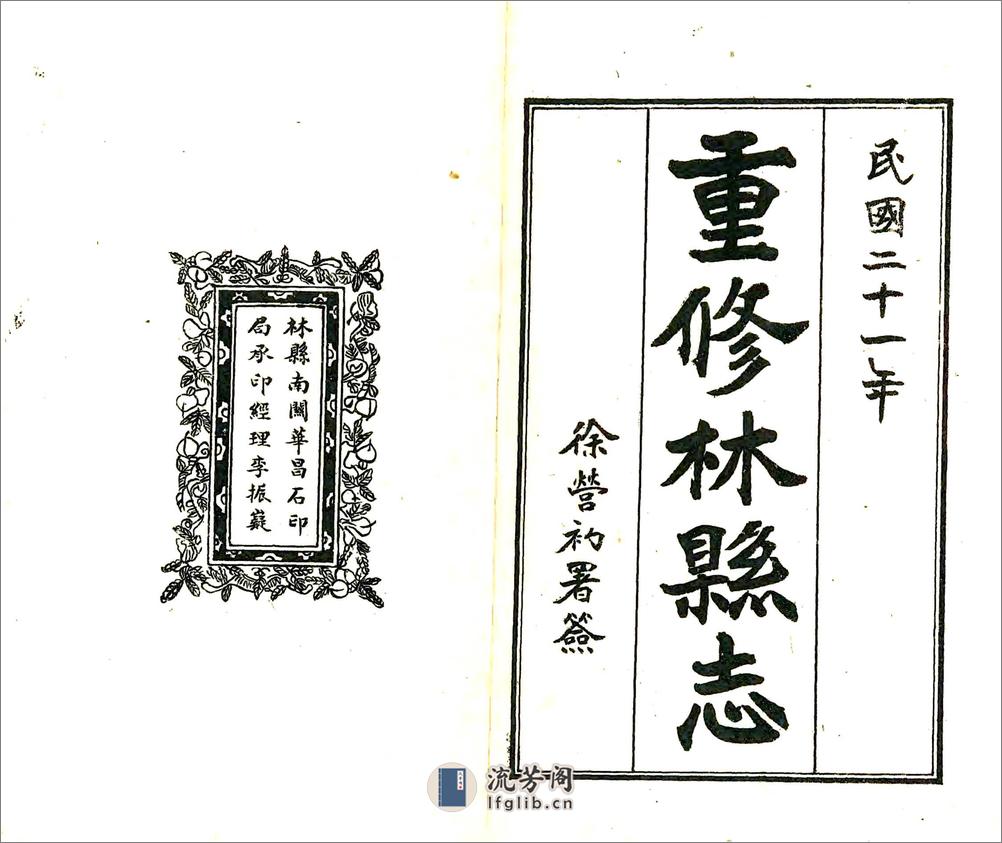 民國二十一年
重修林縣志
徐營初署簽
林縣南關華昌石印
局承印經理李振嶷
流芳阁
lfglib.cn